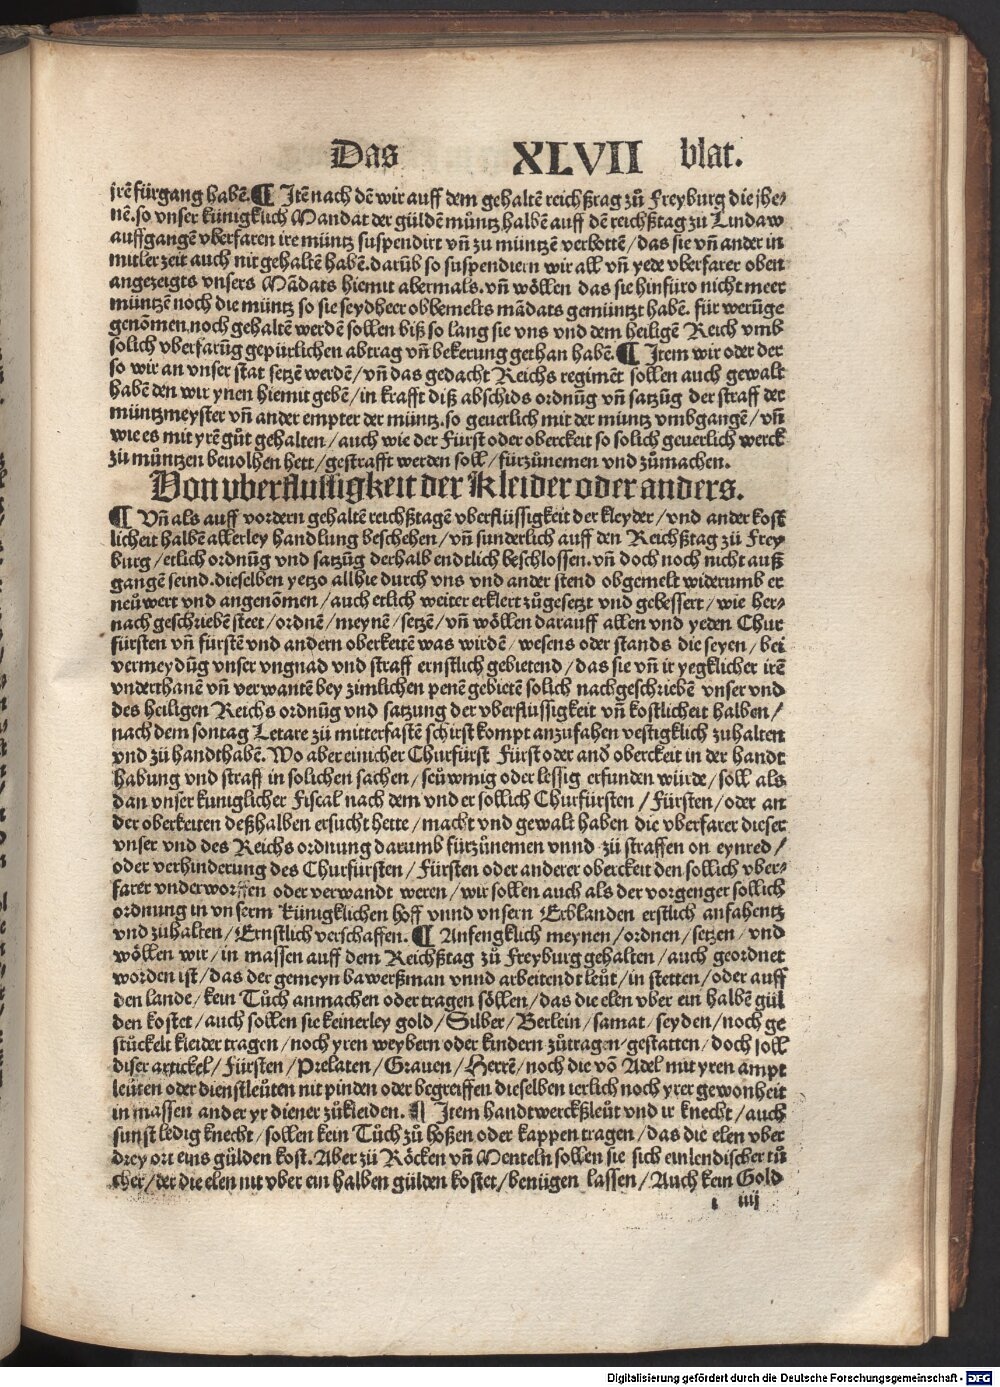 Das XLVII blat.
jrē fürgang habē. ¶ Itē nach dē wir auff dem gehaltē reichßtag zů Freyburg die jhe-
nē. so vnser künigklich Mandat der güldē můntz halbē auff dē reichßtag zu Lindaw
auffgangē vberfaren ire müntz suspendirt vñ zu müntzē verbottē / das sie vñ ander in
mitler zeit auch nit gehaltē habē. darūb so suspendiern wir all vñ yede vberfarer oben
angezeigts vnsers Mādats hiemit abermals. vñ wöllen das sie hinfüro nicht meer
müntzē noch die müntz so sie seydheer obbemelts mādats gemüntzt habē. für werūge
genōmen. noch gehaltē werdē sollen biß so lang sie vns vnd dem heiligē Reich vmb
solich vberfarūg gepürlichen abtrag vñ bekerung gethan habē. ¶ Item wir oder der
so wir an vnser stat setzē werdē / vñ das gedacht Reichs regimēt sollen auch gewalt
habē den wir ynen hiemit gebē / in krafft diß abschids ordnūg vñ satzūg der straff der
müntzmeyster vñ ander empter der müntz. so geuerlich mit der müntz vmbgangē / vñ
wie es mit yrē gůt gehalten / auch wie der Fürst oder oberckeit so solich geuerlich werck
zů můntzen beuolhen hett / gestrafft werden soll / fürzůnemen vnd zůmachen.
Von vberflussigkeit der Kleider oder anders.
¶ Vñ als auff vordern gehaltē reichßtagē vberflüssigkeit der kleyder / vnd ander kost
licheit halbē allerley handlung beschehen / vñ sunderlich auff den Reichßtag zü Frey
burg / etlich ordnūg vnd satzūg derhalb endtlich beschlossen. vñ doch noch nicht auß
gangē seind. dieselben yetzo allhie durch vns vnd ander stend obgemelt widerumb er
neůwert vnd angenōmen / auch etlich weiter erklert zůgesetzt vnd gebessert / wie her-
nach geschriebē steet / ordnē / meynē / setzē / vñ wöllen darauff allen vnd yeden Chur
fürsten vñ fürstē vnd andern oberkeitē was wirdē / wesens oder stands die seyen / bei
vermeydūg vnser vngnad vnd straff ernstlich gebietend / das sie vñ ir yegklicher irē
vnderthanē vñ verwantē bey zimlichen penē gebietē solich nachgeschriebē vnser vnd
des heiligen Reichs ordnūg vnd satzung der vberflussigkeit vñ kostlicheit halben /
nach dem sontag Letare zü mitterfastē schirst kompt anzufahen vestigklich zuhalten
vnd zü handthabē. Wo aber einicher Churfürst Fürst oder and̄ oberckeit in der handt
habung vnd straff in solichen sachen / seüwmig oder lessig erfunden würde / soll als
dan vnser kuniglicher Fiscal nach dem vnd er sollich Churfürsten / Fürsten / oder an
der oberkeiten deßhalben ersucht hette / macht vnd gewalt haben die vberfarer dieser
vnser vnd des Reichs ordnung darumb fürzůnemen vnnd zü straffen on eynred /
oder verhinderung des Churfürsten / Fürsten oder anderer oberckeit den sollich vber-
farer vnderworffen oder verwandt weren / wir sollen auch als der vorgenger sollich
ordnung in vnserm Künigklichen hoff vnnd vnsern Erblanden erstlich anfahentz
vnd zuhalten / Ernstlich verschaffen. ¶ Anfengklich meynen / ordnen / setzen / vnd
wöllen wir / in massen auff dem Reichßtag zů Freyburg gehalten / auch geordnet
worden ist / das der gemeyn bawerßman vnnd arbeitendt leüt / in stetten / oder auff
den lande / kein Tůch anmachen oder tragen söllen / das die elen vber ein halbē gül
den kostet / auch sollen sie keinerley gold / Silber / Berlein / samat / seyden / noch ge
stückelt kleider tragen / noch yren weybern oder kindern zůtragen gestatten / doch soll
diser artickel / Fürsten / Prelaten / Grauen / Herrē / noch die vō Adel mit yren ampt
leüten oder dienstleüten nit pinden oder begreiffen dieselben ierlich noch yrer gewonheit
in massen ander yr diener zůkleiden. ¶ Item handtwerckßleüt vnd ir knecht / auch
sunst ledig knecht / sollen kein Tůch zů hoßen oder kappen tragen / das die elen vber
drey ort eins gülden kost. Aber zü Röcken vñ Menteln sollen sie sich einlendischer tů
cher / der die elen nit vber ein halben gülden kostet / benügen lassen / Auch kein Gold
i iiij
Digitalisierung gefördert durch die Deutsche Forschungsgemeinschaft - DFG